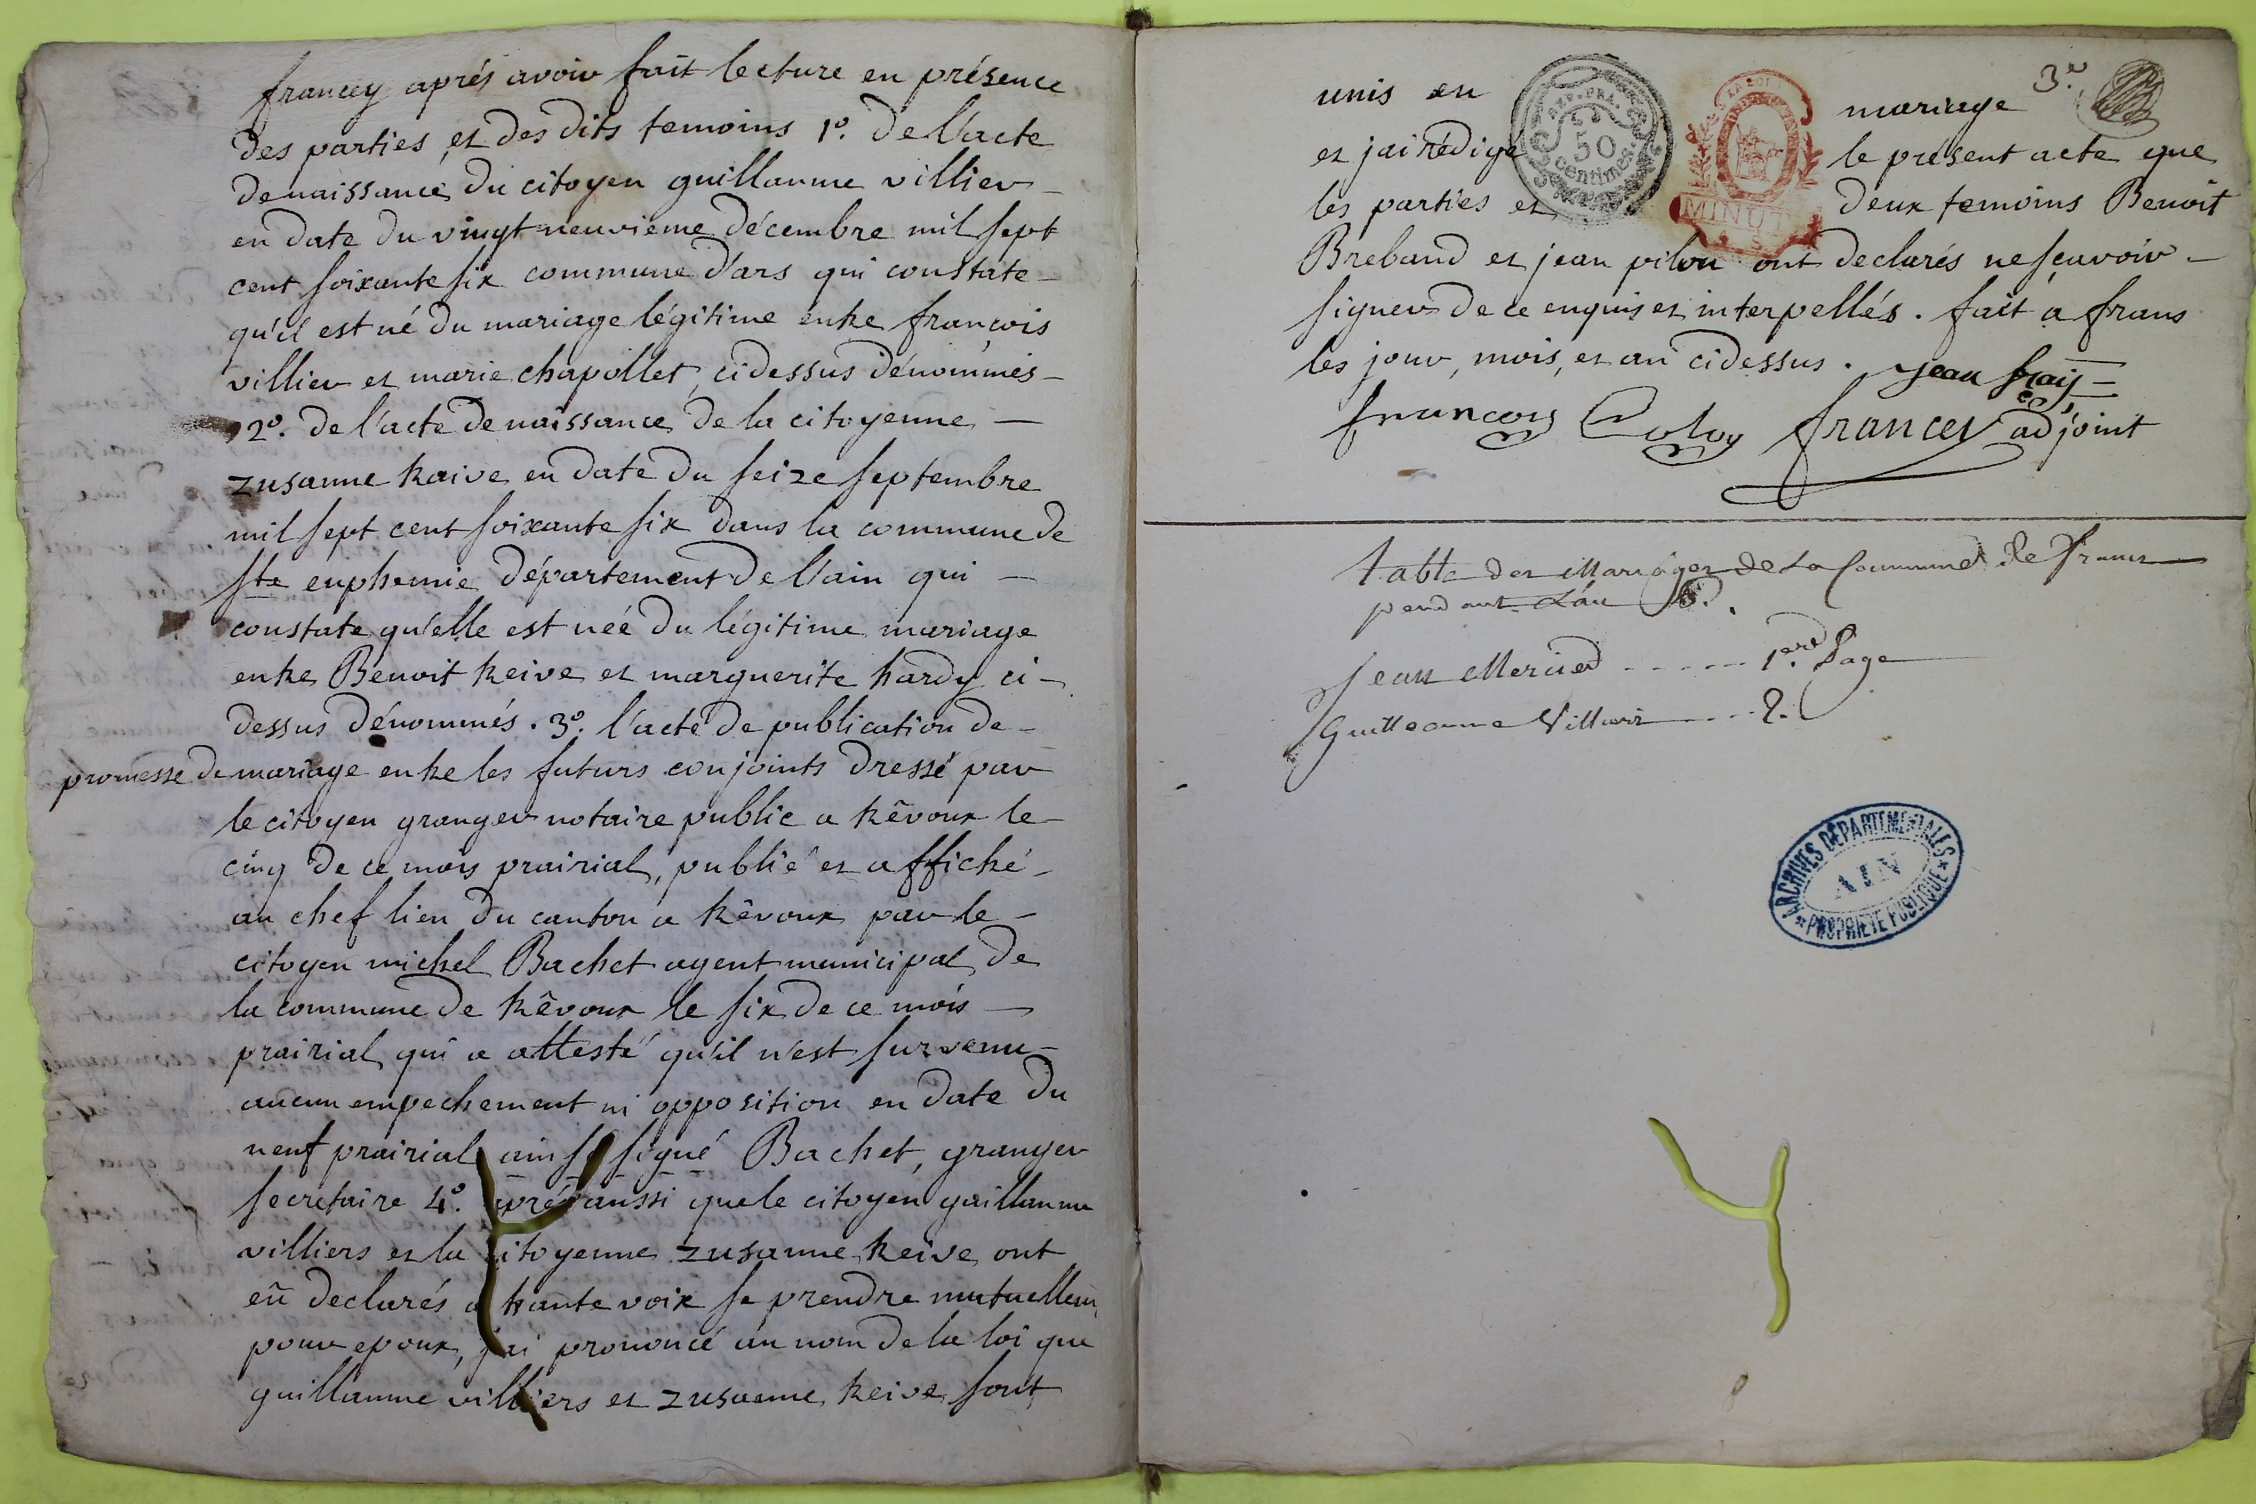 francey après avoir fait lecture en présence
des parties et des dits temoins 1º. de l'acte
de naissance du citoyen guillaume villier
en date du vingt neuvieme décembre mil sept
cent soixante six commune d'ars qui constate
qu'il est né du mariage légitime entre françois
villier et marie chapollet, cidessus dénommés
2º. de l'acte de naissance de la citoyenne
zusanne traive en date du seize septembre
mil sept cent soixante six dans la commune de
ste euphemie département de l'ain qui
constate qu'elle est née du légitime mariage
entre Benoit treive et marguerite hardy ci-
dessus dénommés. 3º. l'acte de publication de
promesse de mariage entre les futurs conjoints dressé par
le citoyen granger notaire public a trêvoux le
cinq de ce mois prairial, publié et affiché
au chef lieu du canton a trêvoux par le
citoyen michel Bachet agent municipal de
la commune de trêvoux le six de ce mois
prairial qui a attesté qu'il n'est survenu
aucun empechement ni opposition en date du
neuf prairial ainsi signé Bachet, granger
secretaire 4º. après aussi que le citoyen guillaume
villiers et la citoyenne zusanne treive ont
eu declarés a haute voix se prendre mutuellem
pour epoux, j'ai prononcé au nom de la loi que
guillaume villiers et zusanne treive sont
3e
unis en mariage
et jai rédigé le présent acte que
les parties et deux temoins Benoit
Breband et jean pilon ont declarés ne sçavoir
signer de ce enquis et interpellés. fait a frans
les jour, mois, et an cidessus. jean fraij
francois Coloy francey adjoint
REP. FRA.
50
centimes
LA LOI
MINUTES
table des Mariages de La Commune de frans
pendant L'an
Jean Mercier - - - - - 1ere Page
Guilleaume Villiers - - - 2.
ARCHIVES DÉPARTEMENTALES
AIN
PROPRIÉTÉ PUBLIQUE